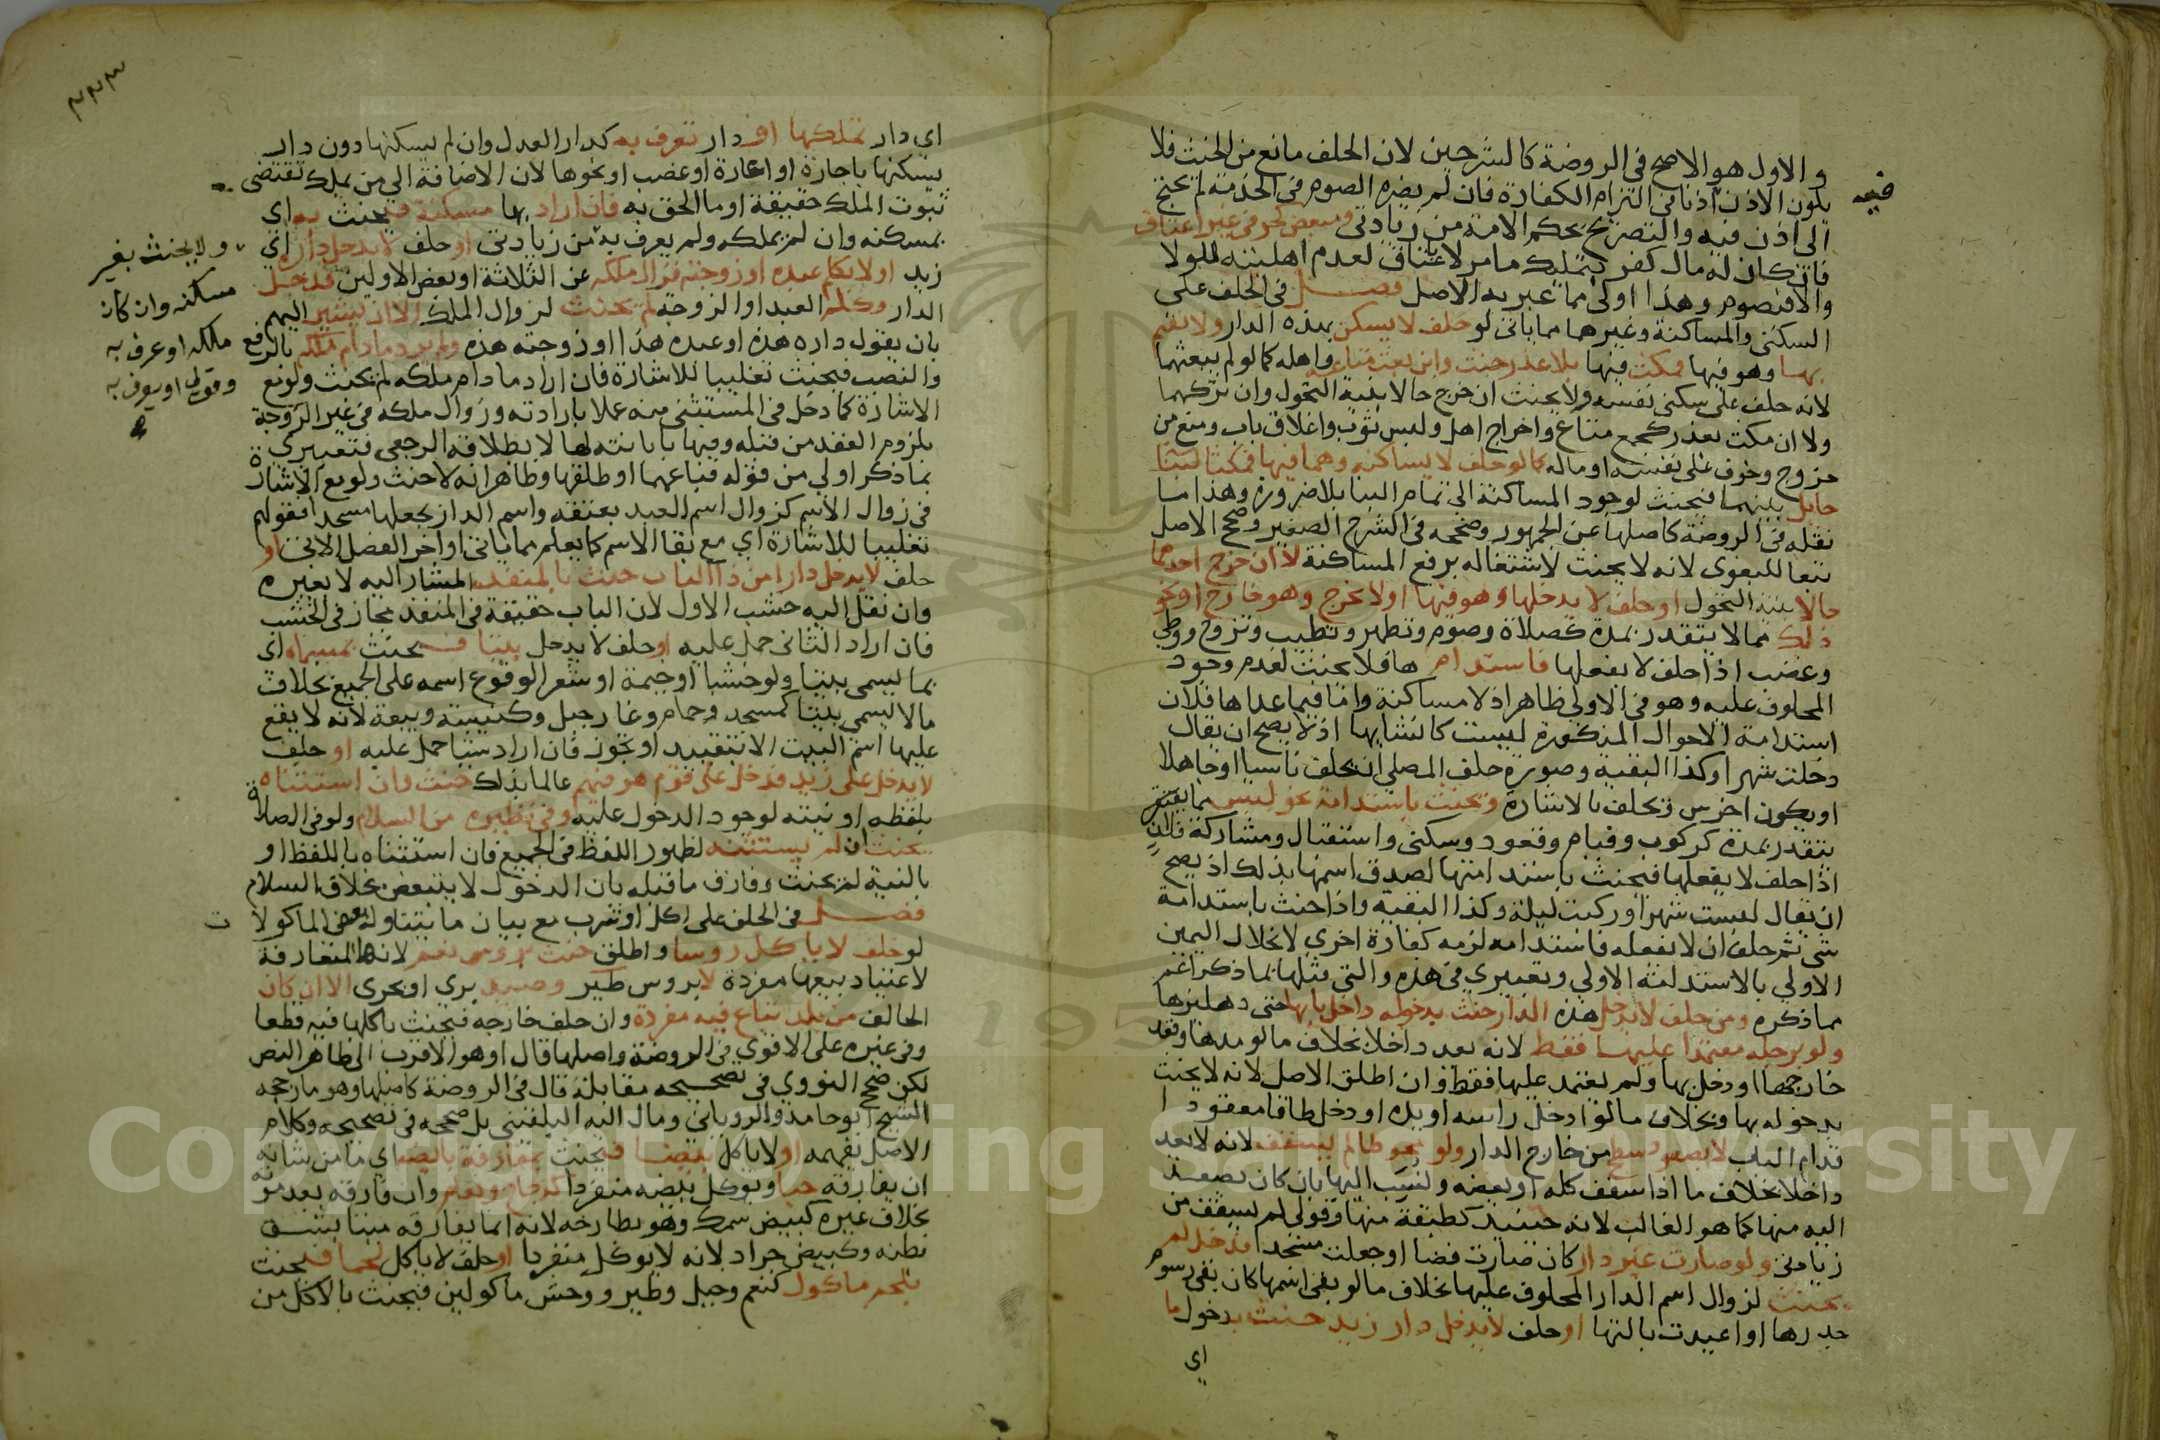 والاول هو الاصح في الروضة كالشرحين لان الحلف مانع من الحنث فلا
يكون الاذن اذنا في التزام الكفارة فان لم يضره الصوم في الخدمة لم يحتج
الى اذن فيه والتصريح بحكم الامة من زيادتي ومبعض كحر في غير اعتاق
فان كان له مال كفر بتمليك ما مر لا اعتاق لعدم اهليته للولا
والا فبصوم وهذا اولى مما عبر به الاصل فصل في الحلف على
السكنى والمساكنة وغيرهما مما ياتي لو حلف لا يسكن بهذه الدار ولا يقيم
بها وهو فيها فمكث فيها بلا عذر حنث وان بعث متاعه واهله كما لو لم يبعثهما
لانه حلف على سكنى نفسه ولا يحنث ان خرج حالا بنية التحول وان تركهما
ولا ان مكث بعذر كجمع متاع واخراج اهل ولبس ثوب واغلاق باب ومنع من
خروج وخوف على نفسه او ماله كما لو حلف لا يساكنه وهما فيها فمكثا لبنا
حايل بينهما فيحنث لوجود المساكنة الى تمام البنا بلا ضرورة وهذا ما
نقله في الروضة كاصلها عن الجمهور وصححه في الشرح الصغير وصحح الاصل
تبعا للبغوي لانه لا يحنث لاشتغاله برفع المساكنة لا ان خرج احدهما
حالا بنية التحول او حلف لا يدخلها وهو فيها اولا يخرج وهو خارج او نحو
ذلك مما لا يتقدر بمدة كصلاة وصوم وتطهر وتطيب وتزوج ووطي
وغضب اذا حلف لا يفعلها فاستدام ها فلا يحنث لعدم وجود
المحلوف عليه وهو في الاولى ظاهر اذ لا مساكنة واما فيما عداها فلان
استدامة الاحوال المذكورة ليست كانشايها اذ لا يصح ان يقال
دخلت شهرا وكذا البقية وصورة حلف المصلي ان يحلف ناسيا او جاهلا
او يكون اخرس ويحلف بالاشارة ويحنث باستدامة نحو لبس مما
يتقدر بمدة كركوب وقيام وقعود وسكنى واستقبال ومشاركة فلان
اذا حلف لا يفعلها فيحنث باستدامتها لصدق اسمها بذلك اذ يصح
ان يقال لبست شهرا وركبت ليلة وكذا البقية واذا حنث باستدامة
شي ثم حلف ان لا يفعله فاستدامه لزمه كفارة اخرى لانحلال اليمين
الاولى بالاستدامة الاولى وتعبيري في هذه والتي قبلها بما ذكر اعم
مما ذكره ومن حلف لا يدخل هذه الدار حنث بدخوله داخل بابها حتى دهليزها
ولو برجله معتمدا عليها فقط لانه يعد داخلا بخلاف ما لو مدها وقعد
خارجها او دخل بها ولم يعتمد عليها فقط وان اطلق الاصل لانه لا يحنث
بدخوله بها وبخلاف ما لو ادخل راسه او يده او دخل طاقا معقودا
قدام الباب لا بصعود سطح من خارج الدار ولو محوطا لم يسقف لانه لا يعد
داخلا بخلاف ما اذا سقف كله او بعضه ونسب اليها بان كان يصعد
اليه منها كما هو الغالب لانه حينيذ كطبقة منها وقولي لم يسقف من
زيادتي ولو صارت غير دار كان صارت فضا او جعلت مسجدا فدخل لم
يحنث لزوال اسم الدار المحلوف عليها بخلاف ما لو بقي اسمها كان بقي رسوم
جدرها او اعيدت بالتها او حلف لا يدخل دار زيد حنث بدخول ما
اي
فيه
٣٣٣
اي دار تملكها او دار تعرف به كدار العدل وان لم يسكنها دون دار
يسكنها باجارة او اعارة او غصب او نحوها لان الاضافة الى من يملك تقتضي
ثبوت الملك حقيقة او ما الحق به فان اراد بها مسكنه فيحنث به اي
بمسكنه وان لم يملكه ولم يعرف به من زيادتي او حلف لا يدخل داره اي
زيد اولا يكلم عبده او زوجته فزال ملكه عن الثلاثة او بعض الاولين فدخل
الدار وكلم العبد او الزوجة لم يحنث لزوال الملك الا ان يشير اليهم
بان يقول داره هذه او عبده هذا او زوجته هذه ولم يرد ما دام ملكه بالرفع
والنصب فيحنث تغليبا للاشارة فان اراد ما دام ملكه لم يحنث ولو مع
الاشارة كما دخل في المستثنى منه عملا بارادته وزوال ملكه في غير الزوجة
بلزوم العقد من قبله وفيها بابانته لها لا بطلاقه الرجعي فتعبيري
بما ذكر اولى من قوله فباعهما او طلقها وظاهر انه لا حنث ولو مع الاشارة
في زوال الاسم كزوال اسم العبد بعتقه واسم الدار بجعلها مسجدا فقولهم
تغليبا للاشارة اي مع بقا الاسم كما يعلم مما ياتي اواخر الفصل الاتي او
حلف لا يدخل دارا من ذا الباب حنث بالمنفذ المشار اليه لا بغيره
وان نقل اليه خشب الاول لان الباب حقيقة في المنفذ مجاز في الخشب
فان اراد الثاني حمل عليه او حلف لا يدخل بيتا فيحنث بمسماه اي
بما يسمى بيتا ولو خشبا او خيمة او شعرا لوقوع اسمه على الجميع بخلاف
ما لا يسمى بيتا كمسجد وحمام وغار جبل وكنيسة وبيعة لانه لا يقع
عليها اسم البيت الا بتقييد او تجوز فان اراد شيا حمل عليه او حلف
لا يدخل على زيد فدخل على قوم هو فيهم عالما بذلك حنث وان استثناه
بلفظه او نيته لوجود الدخول عليه وفي نظيره من السلام ولو في الصلاة
يحنث ان لم يستثنه لظهور اللفظ في الجميع فان استثناه باللفظ او
بالنية لم يحنث وفارق ما قبله بان الدخول لا يتبعض بخلاف السلام
فصل في الحلف على اكل او شرب مع بيان ما يتناوله بعض الماكولا
ت
لو حلف لا ياكل روسا واطلق حنث بروس نعم لانها المتعارفة
لاعتياد بيعها مفردة لا بروس طير وصيد بري او بحري الا ان كان
الحالف من بلد تباع فيه مفردة وان حلف خارجه فيحنث باكلها فيه قطعا
وفي غيره على الاقوى في الروضة واصلها قال وهو الاقرب الى ظاهر النص
لكن صحح النووي في تصحيحه مقابله قال في الروضة كاصلها وهو ما رجحه
الشيخ ابو حامد والروياني ومال اليه البلقيني بل صححه في تصحيحه وكلام
الاصل يفهمه اولا ياكل بيضا فيحنث بمفارقه بايضه اي ما من شانه
ان يفارقه حيا ويوكل بيضه منفردا كدجاج ونعام وان فارقه بعد موته
بخلاف غيره كبيض سمك وهو بطارخه لانه انما يفارقه ميتا بشق
بطنه وكبيض جراد لانه لا يوكل منفردا او حلف لا ياكل لحما فيحنث
بلحم ماكول كنعم وخيل وطير ووحش ماكولين فيحنث بالاكل من
ولا يحنث بغير
مسكنه وان كان
ملكه او عرف به
وقولي او يعرف به
Copyright © King Saud University
1957